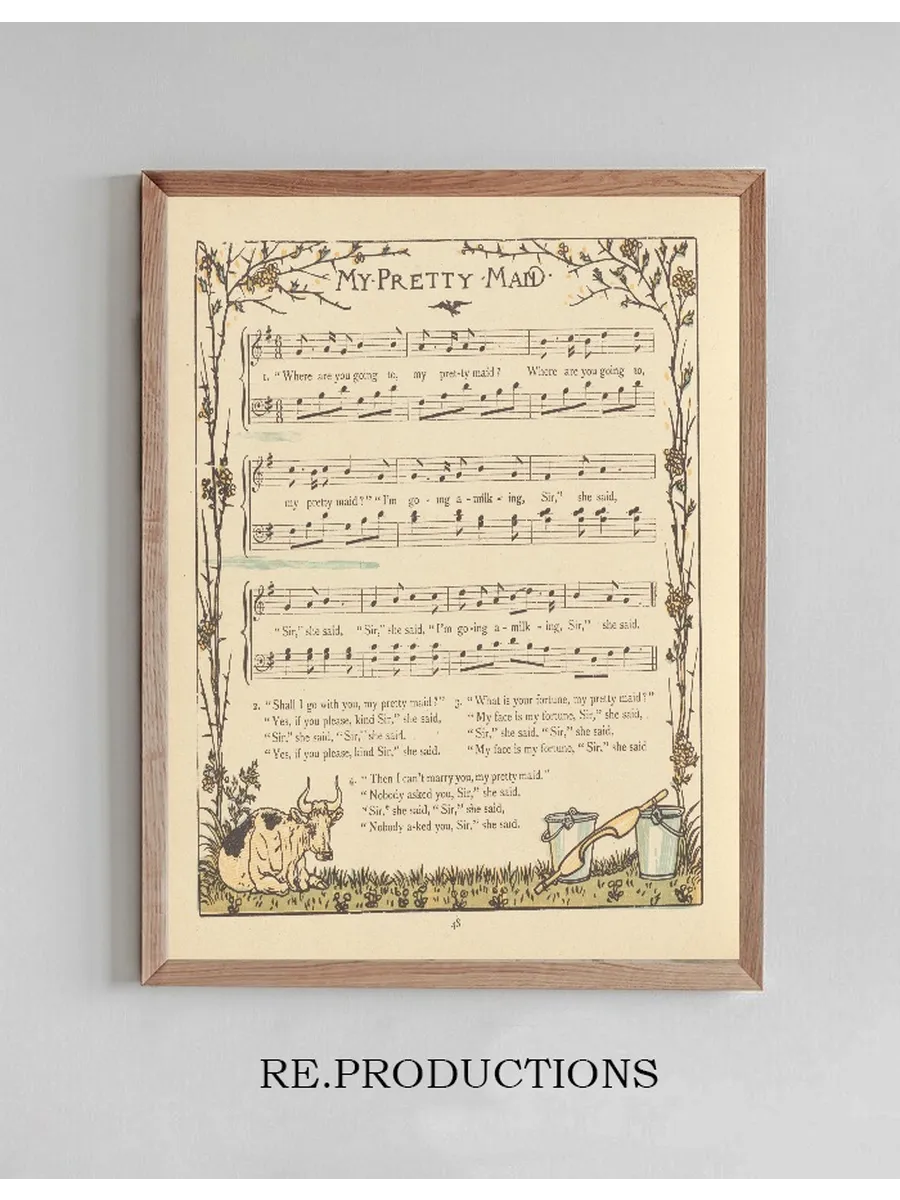 MY·PRETTY·MAID·
1. “Where are you going to, my pret-ty maid? Where are you going to,
my pretty maid?” “I'm go - ing a - milk - ing, Sir,” she said,
“Sir,” she said, “Sir,” she said, “I'm go-ing a - milk - ing, Sir,” she said.
2. “Shall I go with you, my pretty maid?”
“Yes, if you please, kind Sir,” she said,
“Sir,” she said, “Sir,” she said.
“Yes, if you please, kind Sir,” she said.
3. “What is your fortune, my pretty maid?”
“My face is my fortune, Sir,” she said,
“Sir,” she said. “Sir,” she said,
“My face is my fortune, “Sir,” she said
4. “Then I can't marry you, my pretty maid.”
“Nobody asked you, Sir,” she said.
“Sir,” she said, “Sir,” she said,
“Nobody a-ked you, Sir,” she said.
48
RE.PRODUCTIONS